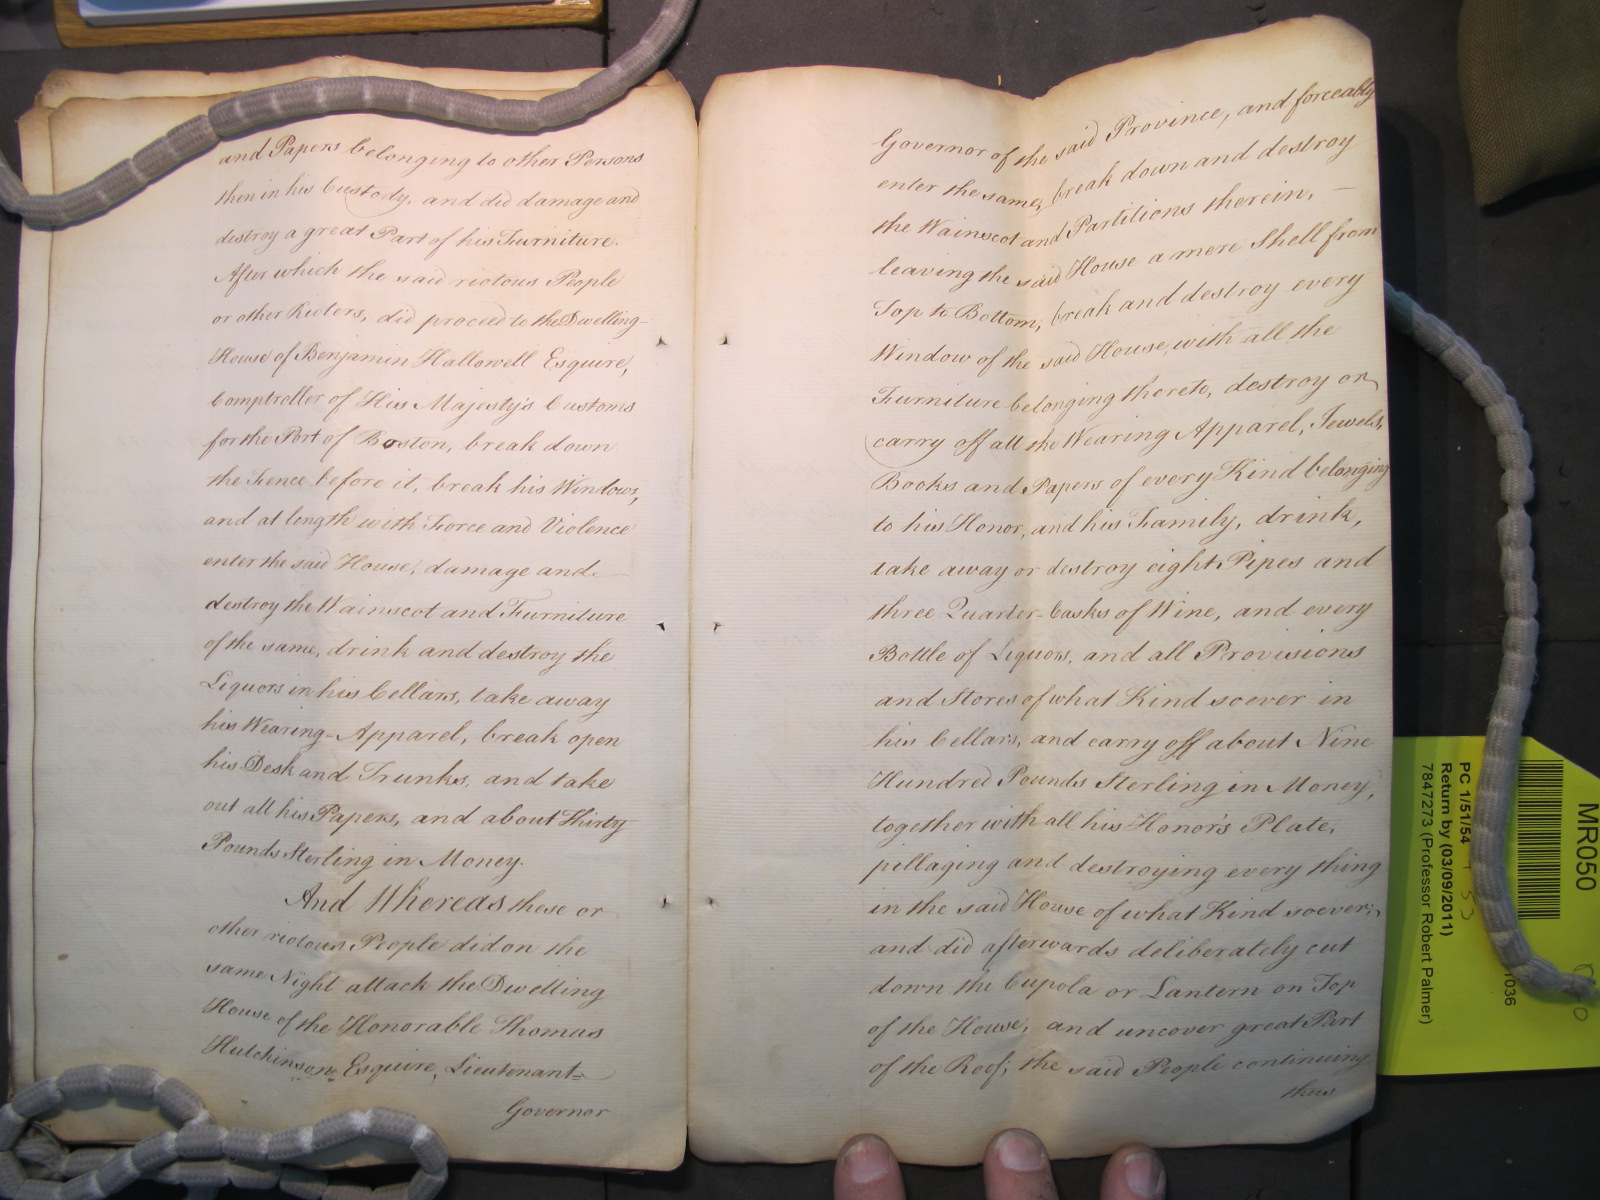 and Papers belonging to other Persons
then in his Custody, and did damage and
destroy a great Part of his Furniture.
After which the said riotous People
or other Rioters, did proceed to the Dwelling-
House of Benjamin Hallowell Esquire,
Comptroller of His Majesty's Customs
for the Port of Boston, break down
the Fence before it, break his Windows,
and at length with Force and Violence
enter the said House, damage and
destroy the Wainscot and Furniture
of the same, drink and destroy the
Liquors in his Cellars, take away
his Wearing-Apparel, break open
his Desk and Trunks, and take
out all his Papers, and about Thirty
Pounds Sterling in Money.
And Whereas these or
other riotous People did on the
same Night attack the Dwelling
House of the Honorable Thomas
Hutchinson Esquire, Lieutenant=
Governor
Governor of the said Province, and forceably
enter the same, break down and destroy
the Wainscot and Partitions therein,
leaving the said House a mere Shell from
Top to Bottom, break and destroy every
Window of the said House, with all the
Furniture belonging thereto, destroy or
carry off all the Wearing Apparel, Jewels,
Books and Papers of every Kind belonging
to his Honor, and his Family, drink,
take away or destroy eight Pipes and
three Quarter-Casks of Wine, and every
Bottle of Liquors, and all Provisions
and Stores of what Kind soever in
his Cellars, and carry off about Nine
Hundred Pounds Sterling in Money,
together with all his Honor's Plate,
pillaging and destroying every thing
in the said House of what Kind soever;
and did afterwards deliberately cut
down the Cupola or Lantern on Top
of the House, and uncover great Part
of the Roof; the said People continuing
thus
MR050
PC 1/51/54
Return by (03/09/2011)
7847273 (Professor Robert Palmer)